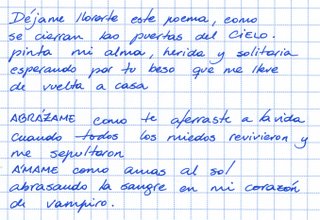 Déjame llorarte este poema, como
se cierran las puertas del CIELO.
pinta mi alma, herida y solitaria
esperando por tu beso que me lleve
de vuelta a casa
ABRÁZAME como te aferraste a la vida
cuando todos los miedos revivieron y
me sepultaron
AMAME como amas al sol
abrasando la sangre en mi corazón
de vampiro.